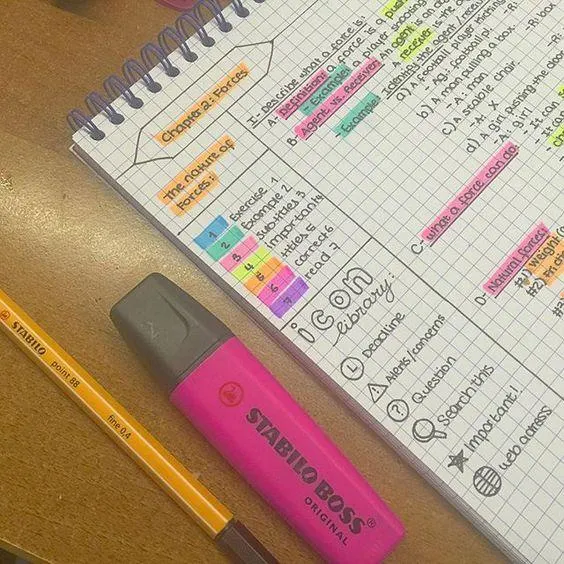 Chapter 2: Forces
The nature of
Forces:
1 Exercise 1
2 Example 2
3 Subtitles 3
4 important 4
5 titles 5
6 correct 6
7 read 7
icon
library:
L Deadline
! Alerts/concerns
? Question
Search this
Important!
web adress
I- Describe what a force is:
A- Definition: a force is a
- Example: a player
B- Agent vs. Receiver
An agent is an
receiver is the
Example: Identify the agent/receiver
a) A football player
- Ag: football pl
b) A man pulling a box
- A: man
c) A stable chair
- A: X
d) A girl pushing the
- A: girl
C- What a force can do
- It can
D- Natural forces
#1) weight
#2)
STABILO point 88 fine 0,4
STABILO BOSS®
ORIGINAL